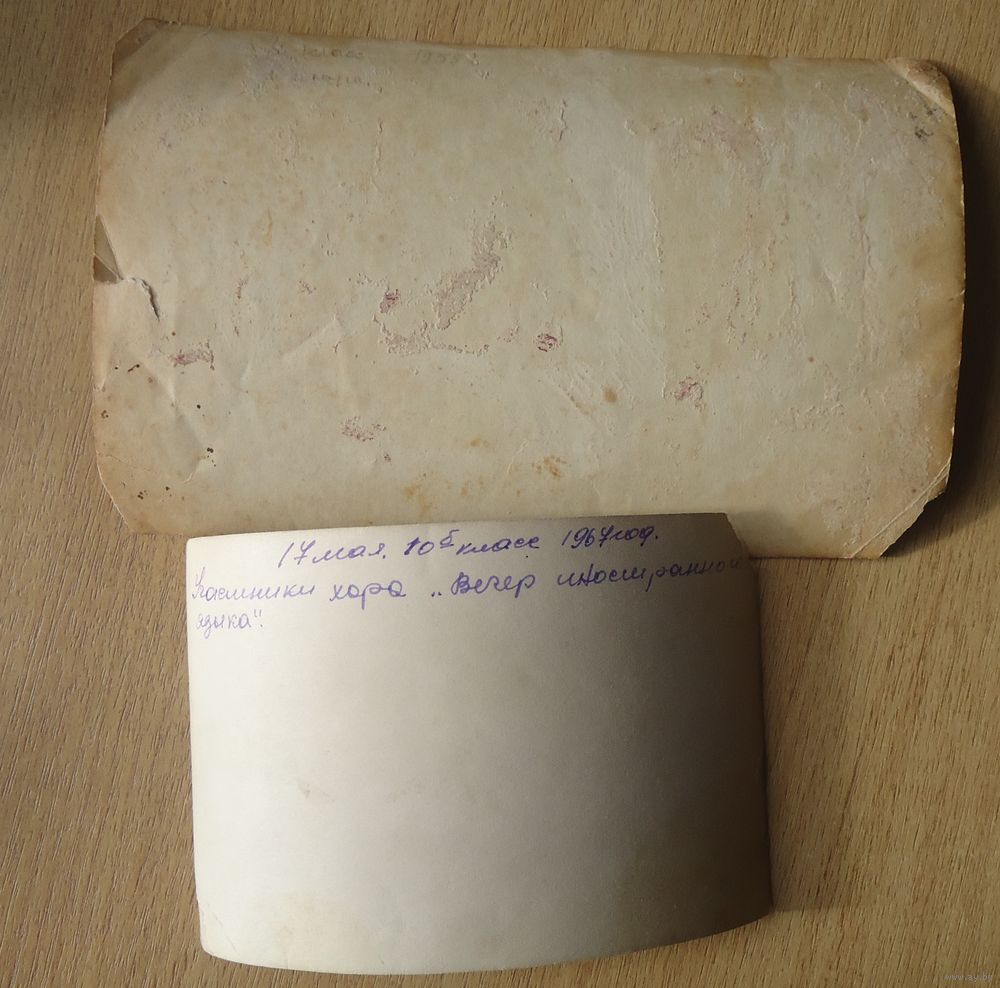 класс 1955
17 мая. 10Б класс 1967 год.
Участники хора „Вечер иностранного
языка".
www.ay.by